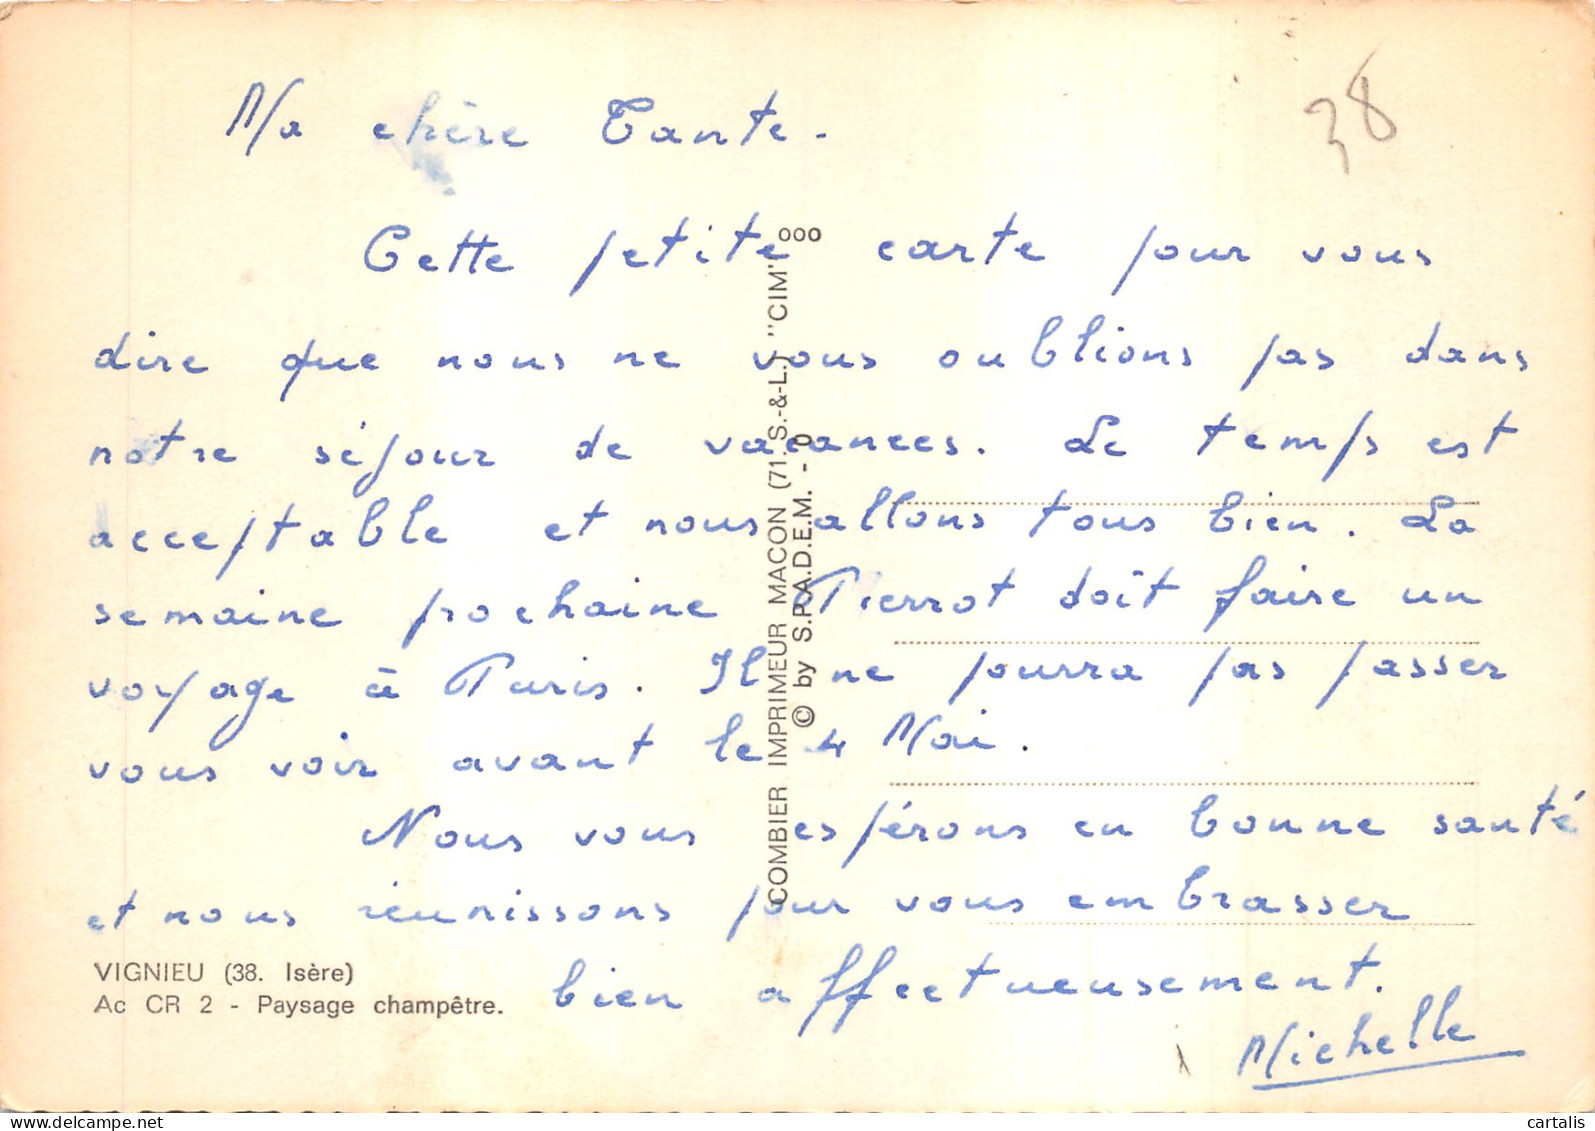 38
Ma chère Tante.
Cette petite carte pour vous
dire que nous ne vous oublions pas dans
notre séjour de vacances. Le temps est
acceptable et nous allons tous bien. La
semaine prochaine Pierrot doit faire un
voyage à Paris. Il ne pourra pas passer
vous voir avant le 4 Mai.
Nous vous espérons en bonne santé
et nous réunissons pour vous embrasser
bien affectueusement.
Michelle
VIGNIEU (38. Isère)
Ac CR 2 - Paysage champêtre.
COMBIER IMPRIMEUR MACON (71.S.-&-L.) "CIM" ooo
© by S.P.A.D.E.M. - 0
delcampe.net
cartalis